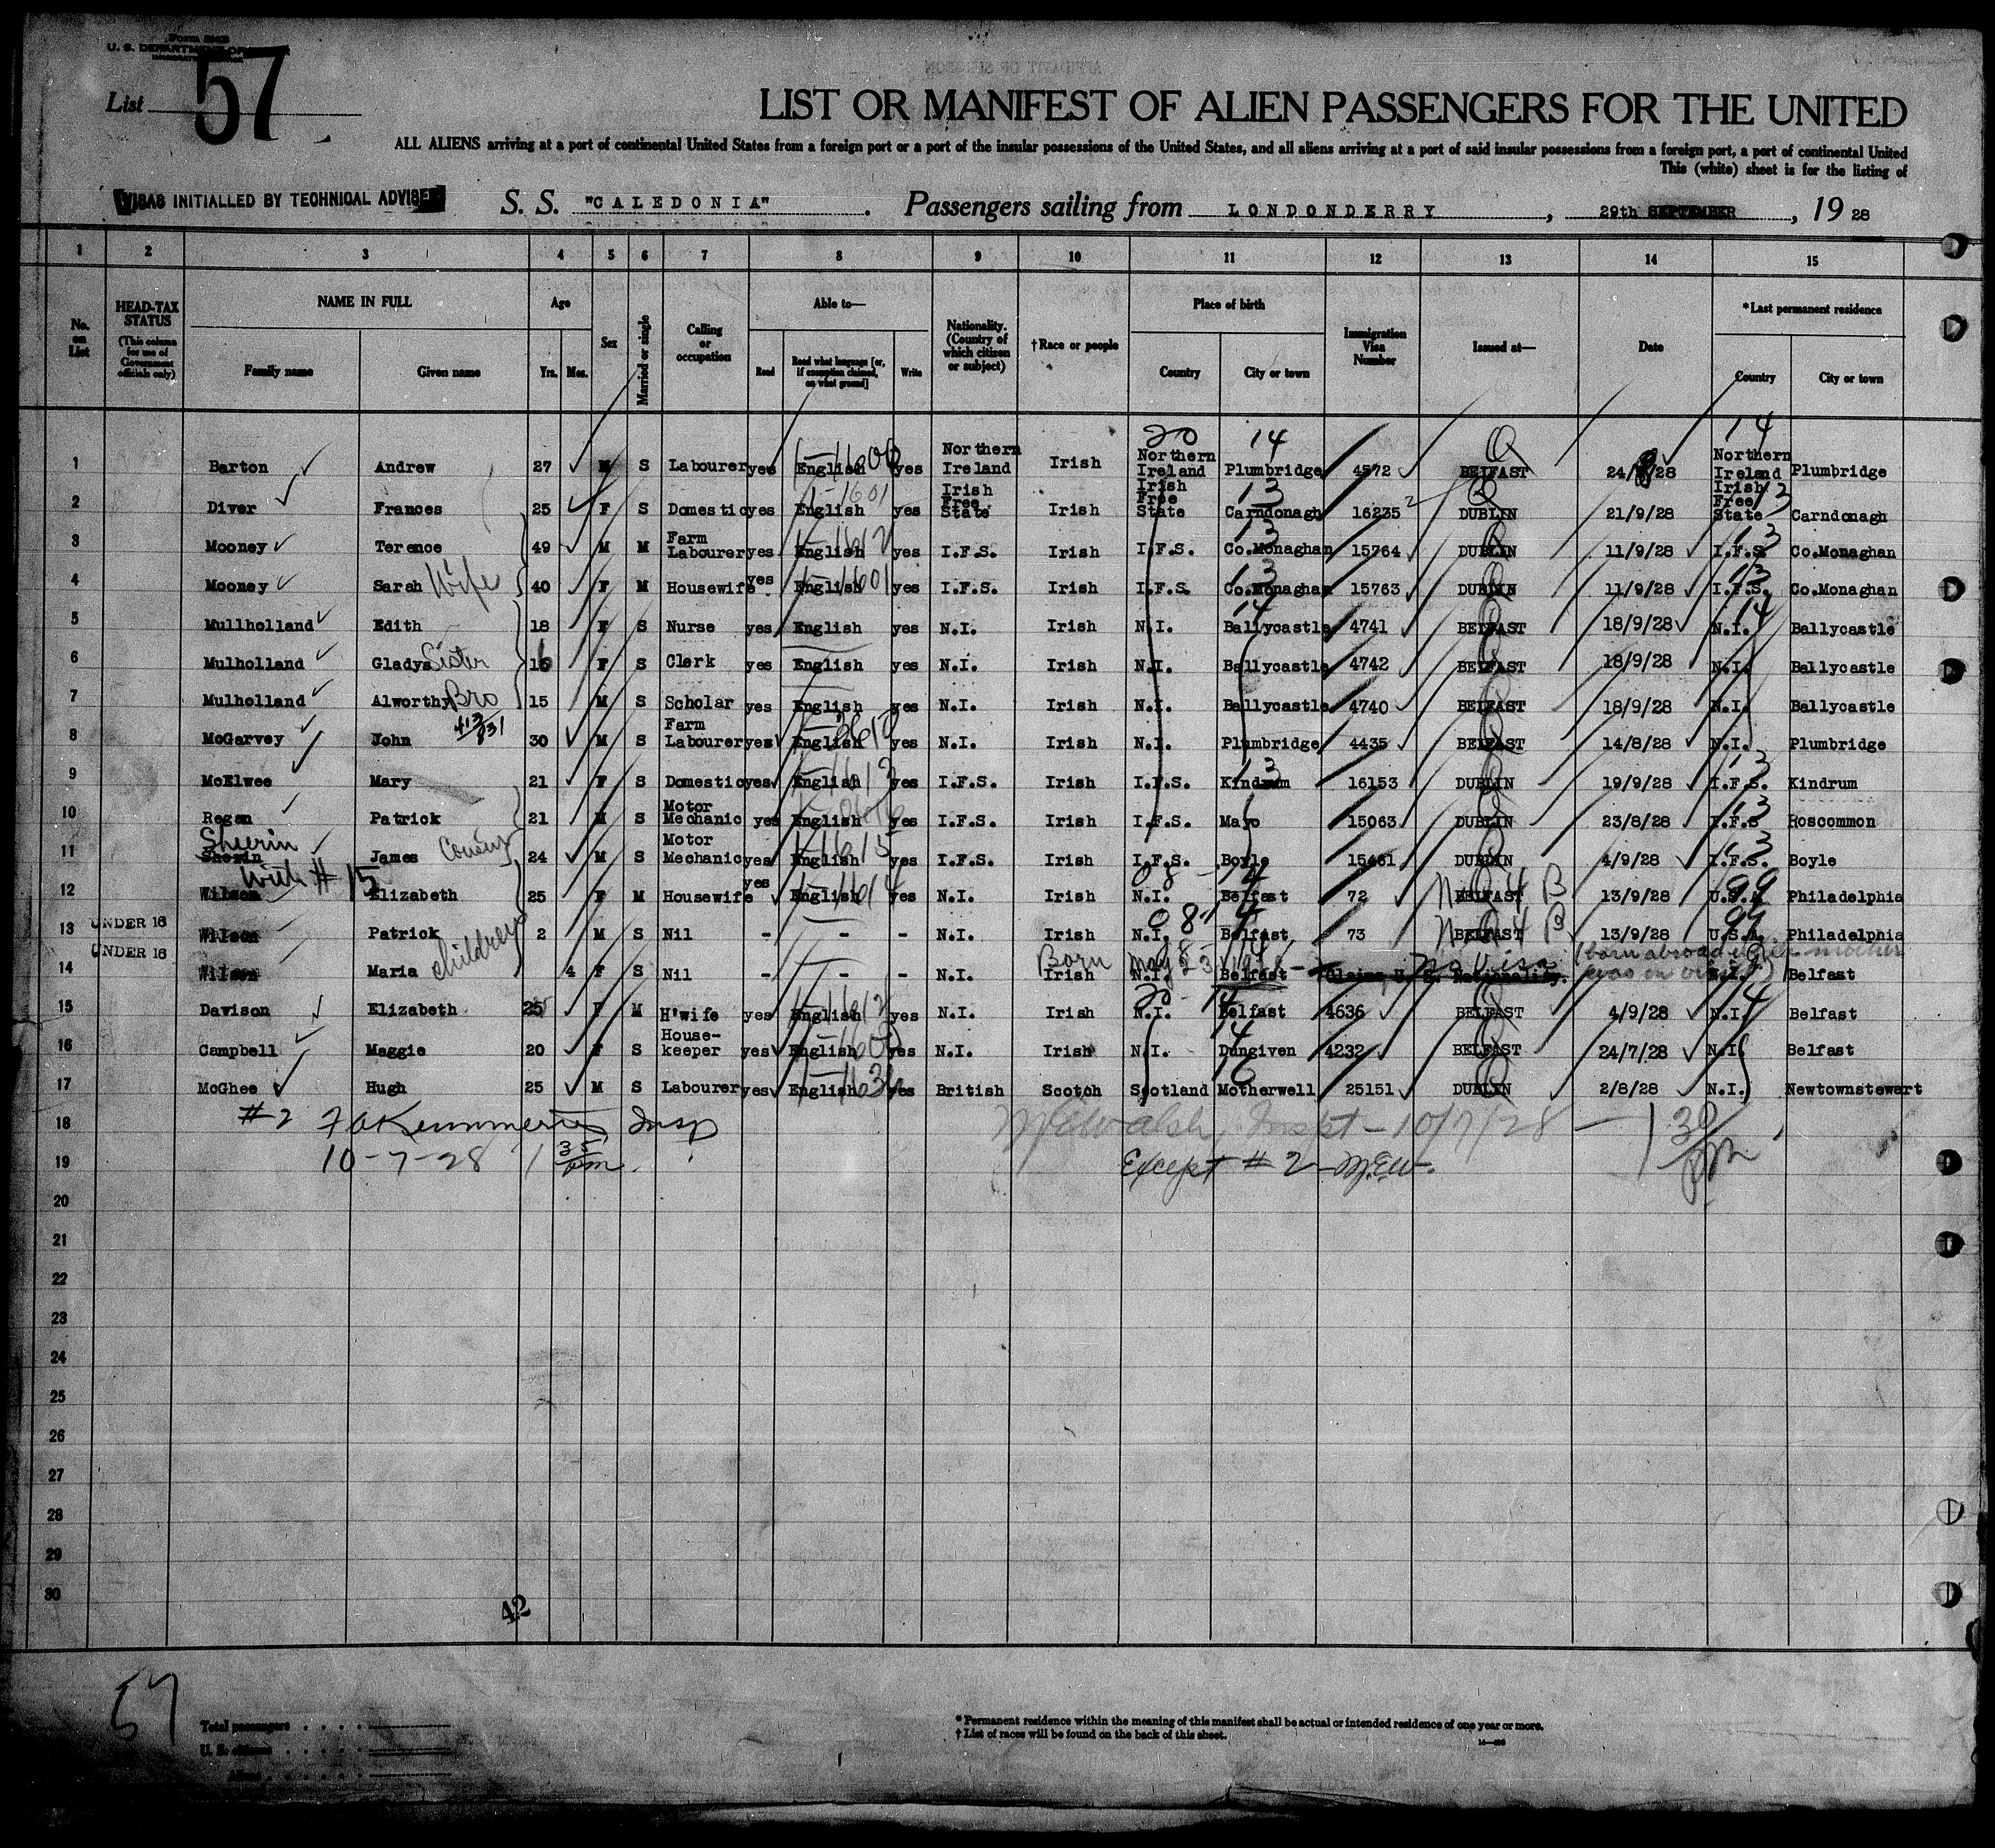 Form 500B
U. S. DEPARTMENT OF
List 57
LIST OR MANIFEST OF ALIEN PASSENGERS FOR THE UNITED
ALL ALIENS arriving at a port of continental United States from a foreign port or a port of the insular possessions of the United States, and all aliens arriving at a port of said insular possessions from a foreign port, a port of continental United
This (white) sheet is for the listing of
VISAS INITIALLED BY TECHNICAL ADVISER
S. S. "CALEDONIA". Passengers sailing from LONDONDERRY, 29th SEPTEMBER, 19 28
1 2 3 4 5 6 7 8 9 10 11 12 13 14 15
No. on List
HEAD-TAX STATUS (This column for use of Government officials only)
NAME IN FULL Family name Given name
Age Yrs. Mos.
Sex
Married or single
Calling or occupation
Able to— Read Read what language [or, if exemption claimed, on what ground] Write
Nationality. (Country of which citizen or subject)
†Race or people
Place of birth Country City or town
Immigration Visa Number
Issued at—
Date
*Last permanent residence Country City or town
20 14 14
1 Barton Andrew 27 M S Labourer yes English yes Northern Ireland Irish Northern Ireland Plumbridge 4572 BELFAST 24/8/28 Northern Ireland Plumbridge
2 Diver Frances 25 F S Domestic yes English yes Irish Free State Irish Irish Free State Carndonagh 16235 DUBLIN 21/9/28 Irish Free State Carndonagh
3 Mooney Terence 49 M M Farm Labourer yes English yes I.F.S. Irish I.F.S. Co.Monaghan 15764 DUBLIN 11/9/28 I.F.S. Co.Monaghan
4 Mooney Sarah Wife 40 F M Housewife yes English yes I.F.S. Irish I.F.S. Co.Monaghan 15763 DUBLIN 11/9/28 I.F.S. Co.Monaghan
5 Mullholland Edith 18 F S Nurse yes English yes N.I. Irish N.I. Ballycastle 4741 BELFAST 18/9/28 N.I. Ballycastle
6 Mulholland Gladys Sister 16 F S Clerk yes English yes N.I. Irish N.I. Ballycastle 4742 BELFAST 18/9/28 N.I. Ballycastle
7 Mulholland Alworthy Bro 15 M S Scholar yes English yes N.I. Irish N.I. Ballycastle 4740 BELFAST 18/9/28 N.I. Ballycastle
8 McGarvey John 30 M S Farm Labourer yes English yes N.I. Irish N.I. Plumbridge 4435 BELFAST 14/8/28 N.I. Plumbridge
9 McElwee Mary 21 F S Domestic yes English yes I.F.S. Irish I.F.S. Kindrum 16153 DUBLIN 19/9/28 I.F.S. Kindrum
10 Regan Patrick 21 M S Motor Mechanic yes English yes I.F.S. Irish I.F.S. Mayo 15063 DUBLIN 23/8/28 I.F.S Roscommon
Sheerin
11 Sherin James Cousin 24 M S Motor Mechanic yes English yes I.F.S. Irish I.F.S. Boyle 15461 DUBLIN 4/9/28 I.F.S. Boyle
with #15
12 Wilson Elizabeth 25 F M Housewife yes English yes N.I. Irish N.I. Belfast 72 BELFAST 13/9/28 U.S.A. Philadelphia
UNDER 16
13 Wilson Patrick children 2 M S Nil - - - N.I. Irish N.I. Belfast 73 BELFAST 13/9/28 U.S.A. Philadelphia
UNDER 16 Born May 23 1928 No Visa born abroad while mother was on visit
14 Wilson Maria 4 F S Nil - - - N.I. Irish N.I. Belfast Claims U.S. Nationality. N.I. Belfast
15 Davison Elizabeth 25 F M H'wife yes English yes N.I. Irish N.I. Belfast 4636 BELFAST 4/9/28 N.I. Belfast
16 Campbell Maggie 20 F S House-keeper yes English yes N.I. Irish N.I. Dungiven 4232 BELFAST 24/7/28 N.I. Belfast
17 McGhee Hugh 25 M S Labourer yes English yes British Scotch Scotland Motherwell 25151 DUBLIN 2/8/28 N.I. Newtownstewart
18 #2 Insp Walsh, Inspt - 10/7/28 - 1 30 pm
19 10-7-28 1 35 pm Except #2
20
21
22
23
24
25
26
27
28
29
30
42
57
Total passengers
U. S. citizens
Aliens
* Permanent residence within the meaning of this manifest shall be actual or intended residence of one year or more.
† List of races will be found on the back of this sheet.